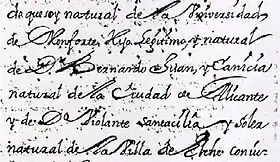 de que soy natural de la Universidad
de Monforte, Hijo Legitimo, y natural
de Dn Bernardo Juan, y Canicia
natural de la Ciudad de Alicante
y de Da Violante Santacilia y Soler
natural de la Villa de Elche coniu